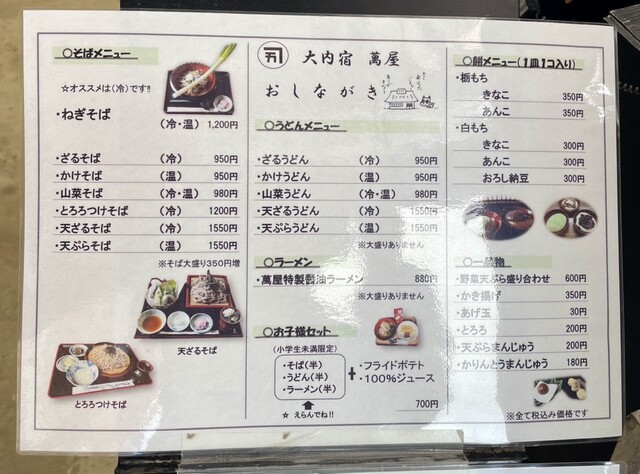 ○そばメニュー
☆オススメは(冷)です!!
・ねぎそば (冷・温) 1,200円
・ざるそば (冷) 950円
・かけそば (温) 950円
・山菜そば (冷・温) 980円
・とろろつけそば (冷) 1200円
・天ざるそば (冷) 1550円
・天ぷらそば (温) 1550円
※そば大盛り350円増
天ざるそば
とろろつけそば
大内宿 萬屋
おしながき
○うどんメニュー
・ざるうどん (冷) 950円
・かけうどん (温) 950円
・山菜うどん (冷・温) 980円
・天ざるうどん (冷) 1550円
・天ぷらうどん (温) 1550円
※大盛りありません
○ラーメン
・萬屋特製醤油ラーメン 880円
※大盛りありません
○お子様セット
(小学生未満限定)
・そば(半)
・うどん(半)
・ラーメン(半)
+
・フライドポテト
・100%ジュース
☆ えらんでね!!
700円
○餅メニュー(1皿1コ入り)
・栃もち
きなこ 350円
あんこ 350円
・白もち
きなこ 300円
あんこ 300円
おろし納豆 300円
○一品物
・野菜天ぷら盛り合わせ 600円
・かき揚げ 350円
・あげ玉 30円
・とろろ 200円
・天ぷらまんじゅう 200円
・かりんとうまんじゅう 180円
※全て税込み価格です